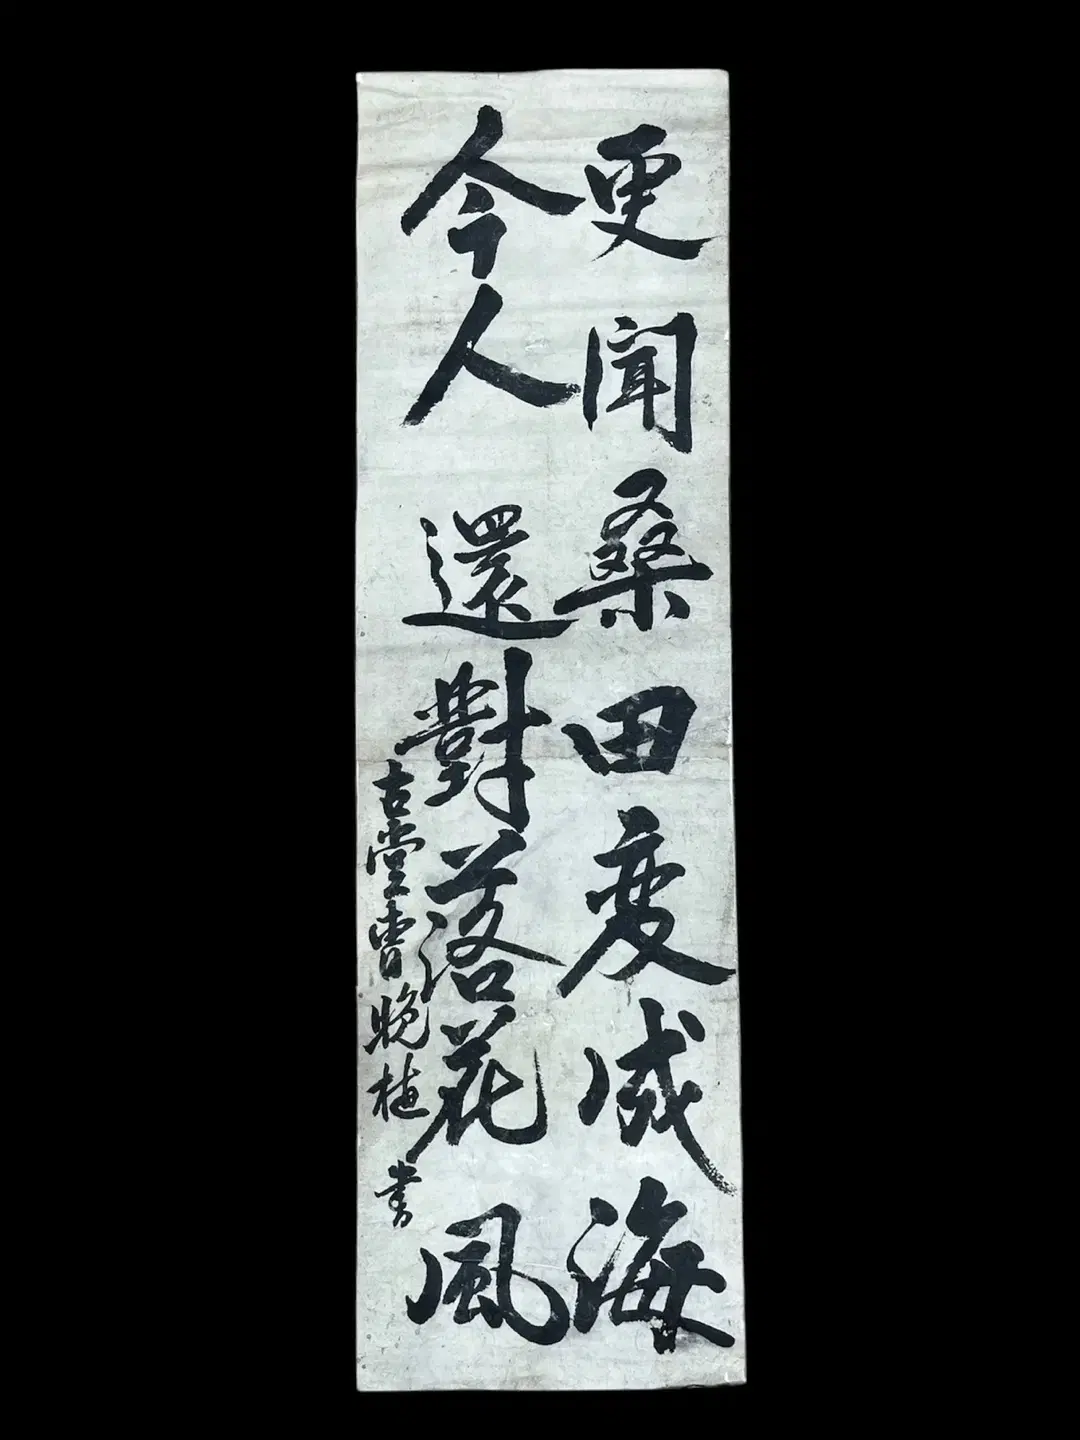 更聞桑田变成海
今人還對落花風
古堂曹晚植書